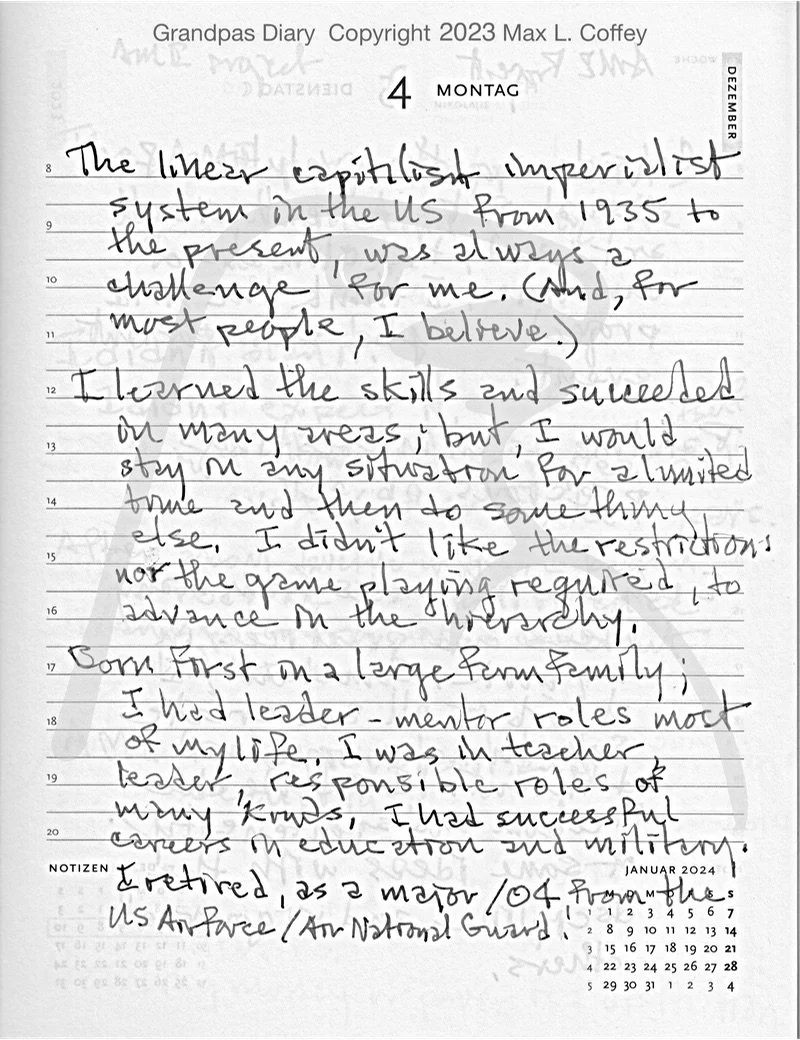 Grandpas Diary Copyright 2023 Max L. Coffey
4 MONTAG
DEZEMBER
8 The linear capitilist imperialist
system in the US from 1935 to
9
the present, was always a
10 challenge for me. (And, for
11 most people, I believe.)
12 I learned the skills and succeeded
in many areas; but, I would
13
stay in any situation for a limited
14 time and then do something
else. I didn't like the restrictions
15
nor the game playing required, to
16 advance in the hierarchy.
17 Born first in a large farm family;
I had leader-mentor roles most
18
of my life. I was in teacher,
19 leader, responsible roles of
many kinds. I had successful
20
careers in education and military.
NOTIZEN
I retired, as a major/04 from the
US Airforce/Air National Guard!
JANUAR 2024
M D M D F S S
1 1 2 3 4 5 6 7
2 8 9 10 11 12 13 14
3 15 16 17 18 19 20 21
4 22 23 24 25 26 27 28
5 29 30 31 1 2 3 4